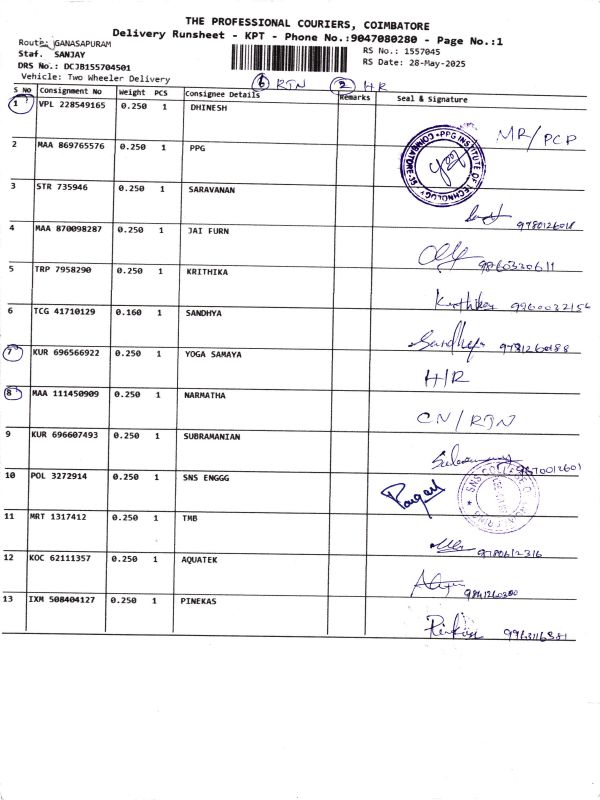 THE PROFESSIONAL COURIERS, COIMBATORE
Delivery Runsheet - KPT - Phone No.:9047080280 - Page No.:1
Route: GANASAPURAM
Staf. SANJAY
DRS No.: DCJB155704501
Vehicle: Two Wheeler Delivery
RS No.: 1557045
RS Date: 28-May-2025
RTN HR
S No Consignment No Weight PCS Consignee Details Remarks Seal & Signature
1 VPL 228549165 0.250 1 DHINESH MR/PCP
2 MAA 869765576 0.250 1 PPG
PPG INSTITUTE OF TECHNOLOGY
3 STR 735946 0.250 1 SARAVANAN
4 MAA 870098287 0.250 1 JAI FURN 9860320611
5 TRP 7958290 0.250 1 KRITHIKA Krithika
6 TCG 41710129 0.160 1 SANDHYA Sandhya
7 KUR 696566922 0.250 1 YOGA SAMAYA H/R
8 MAA 111450909 0.250 1 NARMATHA CN/RTN
9 KUR 696607493 0.250 1 SUBRAMANIAN
10 POL 3272914 0.250 1 SNS ENGGG
SNS COLLEGE OF
11 MRT 1317412 0.250 1 TMB 9780612316
12 KOC 62111357 0.250 1 AQUATEK
13 IXM 508404127 0.250 1 PINEKAS